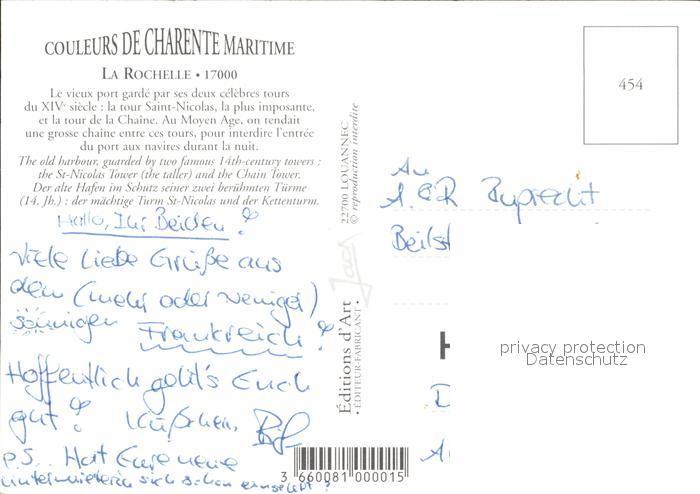 COULEURS DE CHARENTE MARITIME
LA ROCHELLE • 17000
Le vieux port gardé par ses deux célèbres tours
du XIVe siècle : la tour Saint-Nicolas, la plus imposante,
et la tour de la Chaîne. Au Moyen Age, on tendait
une grosse chaîne entre ces tours, pour interdire l'entrée
du port aux navires durant la nuit.
The old harbour, guarded by two famous 14th-century towers :
the St-Nicolas Tower (the taller) and the Chain Tower.
Der alte Hafen im Schutz seiner zwei berühmten Türme
(14. Jh.) : der mächtige Turm St-Nicolas und der Kettenturm.
Hallo, Ihr Beiden!
Viele liebe Grüße aus
dem (mehr oder weniger)
sonnigen Frankreich!
Hoffentlich geht's Euch
gut! Küßchen,
P.S. Hat Eure neue
Untermieterin sich schon eingelebt?
22700 LOUANNEC
© reproduction interdite
Jack
Editions d'Art
• ÉDITEUR-FABRICANT •
3 660081 000015
454
An
A. & R. Ruprecht
Beilst
privacy protection
Datenschutz